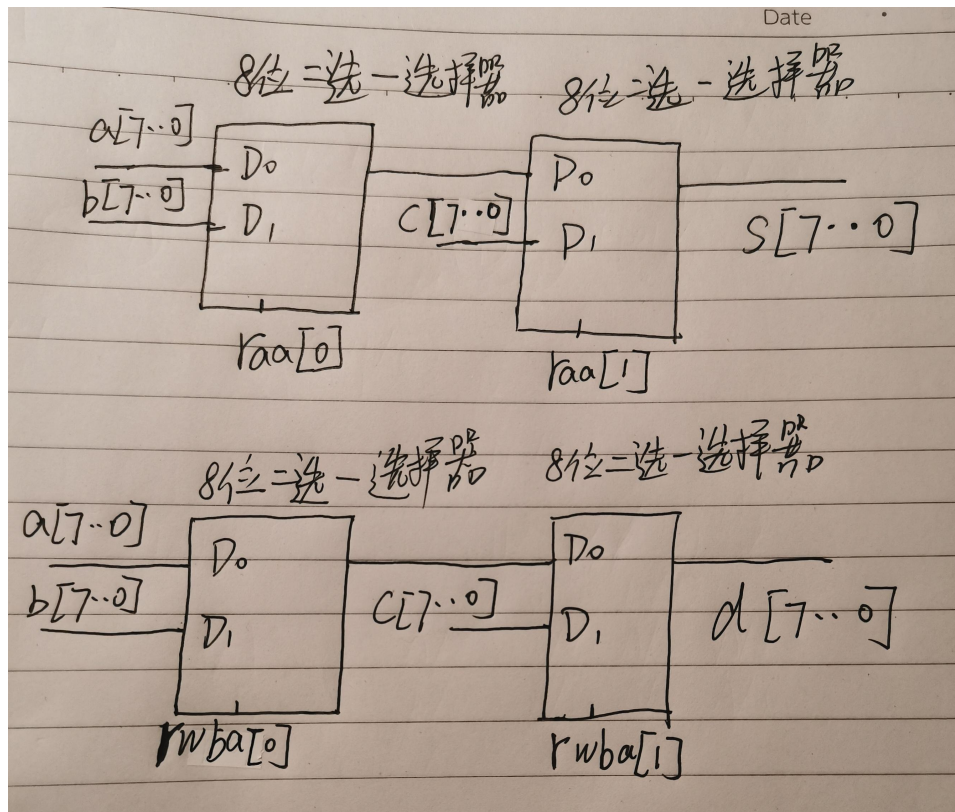 Date
8位二选一选择器 8位二选一选择器
a[7··0]
D0 D0
b[7··0]
D1 C[7··0] D1 S[7··0]
raa[0] raa[1]
8位二选一选择器 8位二选一选择器
a[7··0]
D0 D0
b[7··0] C[7··0] d[7··0]
D1 D1
rwba[0] rwba[1]